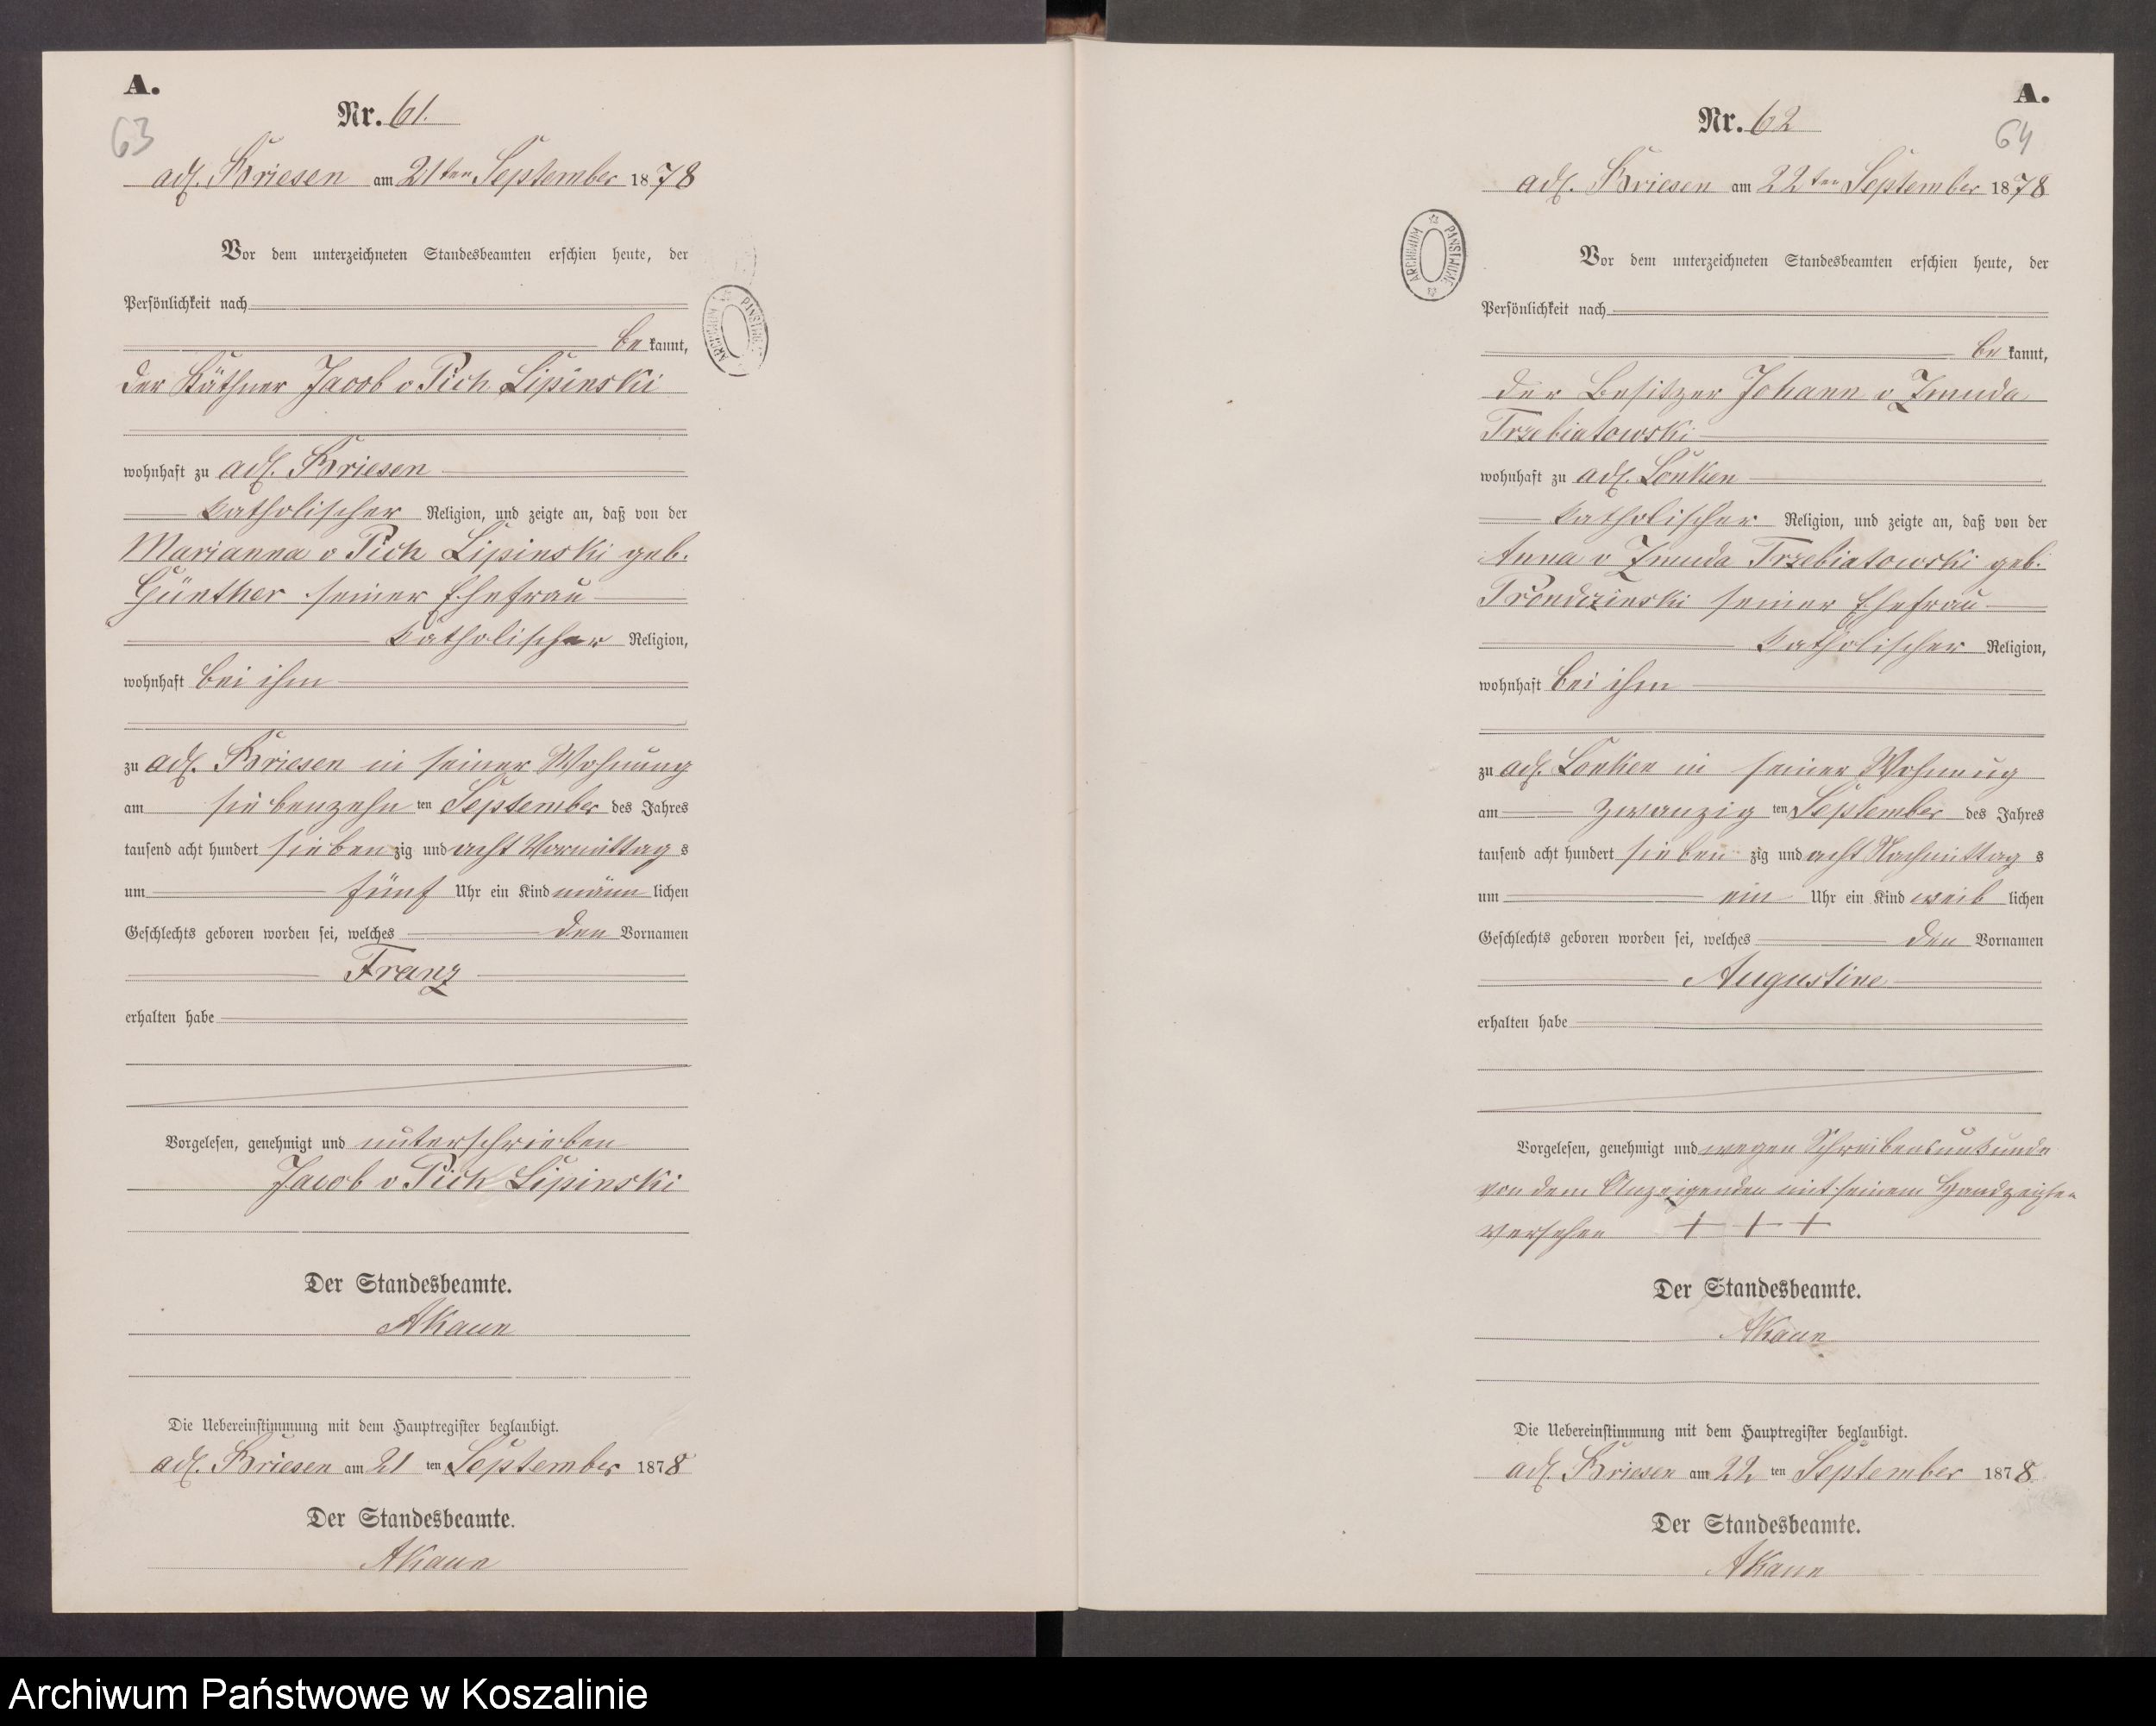 A.
63
Nr. 61.
adl. Briesen am 21ten September 1878
Vor dem unterzeichneten Standesbeamten erschien heute, der
Persönlichkeit nach
be kannt,
der Käthner Jacob v Pich Lipinski
wohnhaft zu adl. Briesen
katholischer Religion, und zeigte an, daß von der
Marianna v Pich Lipinski geb.
Günther seiner Ehefrau
katholischer Religion,
wohnhaft bei ihm
zu adl. Briesen in seiner Wohnung
am siebenzehn ten September des Jahres
tausend acht hundert sieben zig und acht Vormittag s
um fünf Uhr ein Kind männ lichen
Geschlechts geboren worden sei, welches den Vornamen
Franz
erhalten habe
Vorgelesen, genehmigt und unterschrieben
Jacob v Pich Lipinski
Der Standesbeamte.
AKaun
Die Uebereinstimmung mit dem Hauptregister beglaubigt.
adl. Briesen am 21 ten September 1878
Der Standesbeamte.
AKaun
ARCHIWUM PAŃSTWOWE
A.
64
Nr. 62
adl. Briesen am 22ten September 1878
Vor dem unterzeichneten Standesbeamten erschien heute, der
Persönlichkeit nach
be kannt,
der Besitzer Johann v Zmuda
Trzebiatowski
wohnhaft zu adl. Lonken
katholischer Religion, und zeigte an, daß von der
Anna v Zmuda Trzebiatowski geb.
Prondzinski seiner Ehefrau
katholischer Religion,
wohnhaft bei ihm
zu adl. Lonken in seiner Wohnung
am zwanzig ten September des Jahres
tausend acht hundert sieben zig und acht Nachmittag s
um ein Uhr ein Kind weib lichen
Geschlechts geboren worden sei, welches den Vornamen
Augustine
erhalten habe
Vorgelesen, genehmigt und wegen Schreibensunkunde
von dem Anzeigenden mit seinem Handzeichen
versehen + + +
Der Standesbeamte.
AKaun
Die Uebereinstimmung mit dem Hauptregister beglaubigt.
adl. Briesen am 22 ten September 1878
Der Standesbeamte.
AKaun
Archiwum Państwowe w Koszalinie